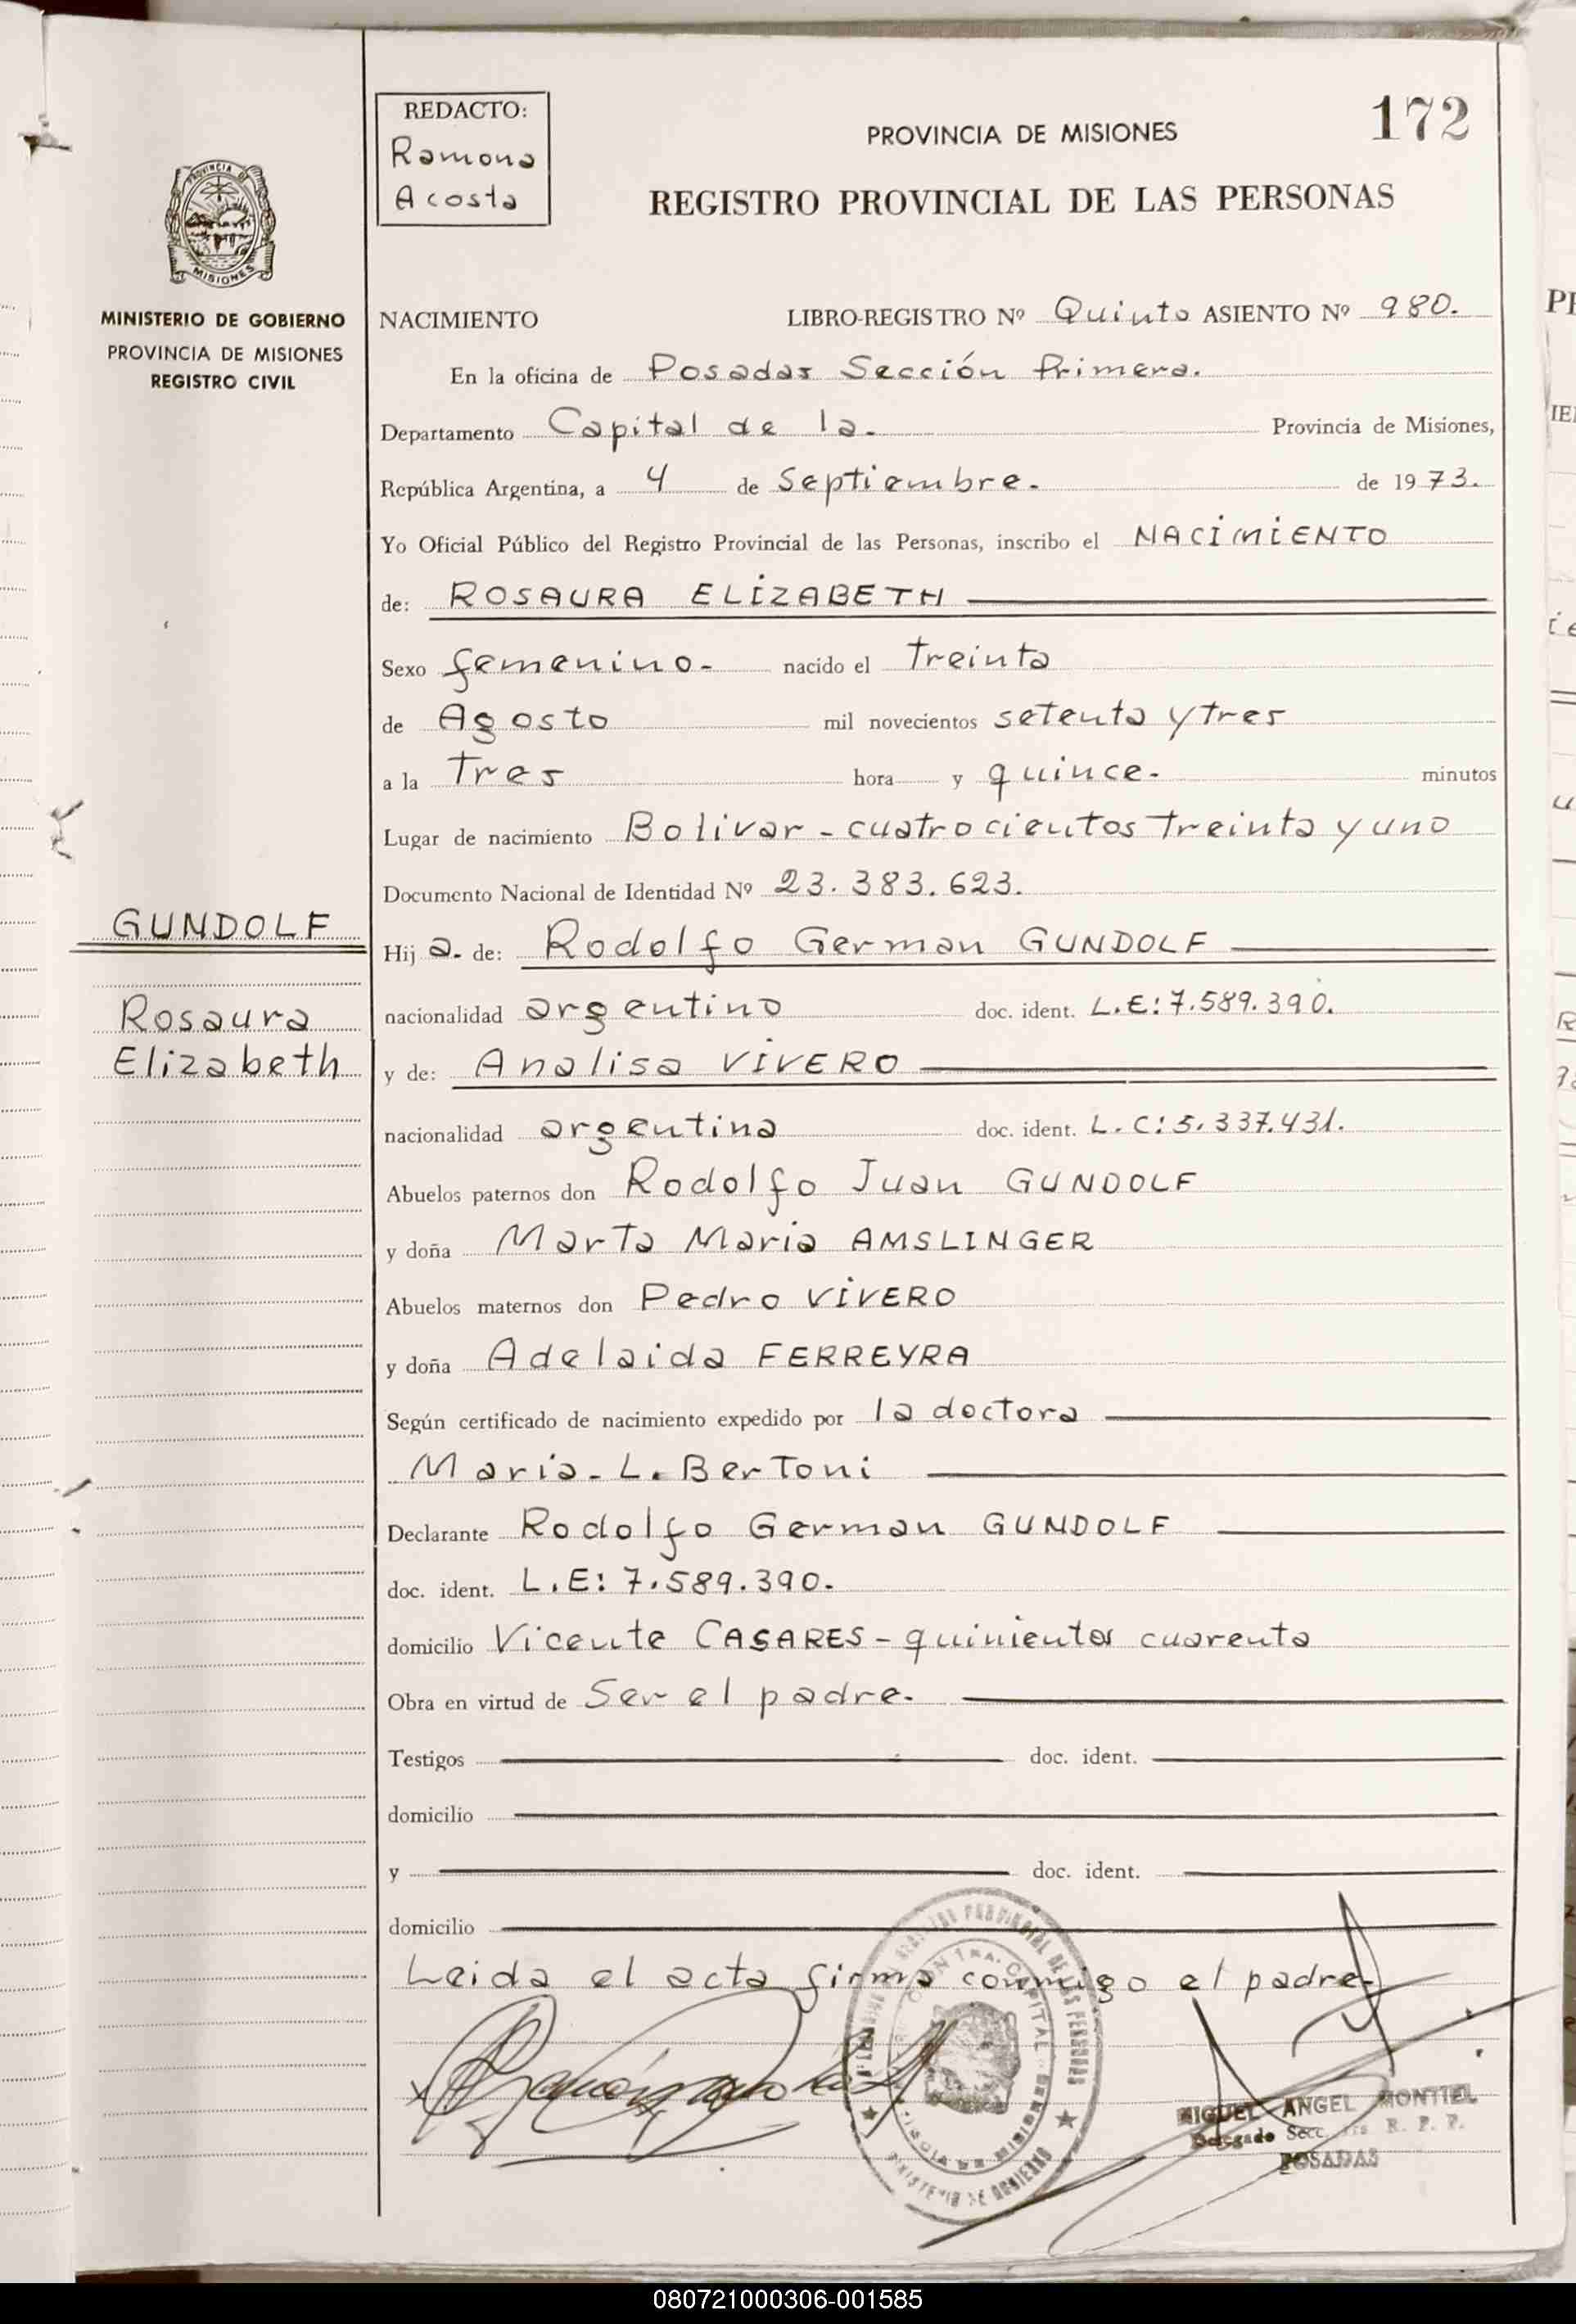 REDACTO:
Ramona
Acosta
PROVINCIA DE MISIONES
172
REGISTRO PROVINCIAL DE LAS PERSONAS
PROVINCIA DE
MISIONES
MINISTERIO DE GOBIERNO
PROVINCIA DE MISIONES
REGISTRO CIVIL
NACIMIENTO LIBRO-REGISTRO Nº Quinto ASIENTO Nº 980.
En la oficina de Posadas Sección Primera.
Departamento Capital de la. Provincia de Misiones,
República Argentina, a 4 de Septiembre. de 1973.
Yo Oficial Público del Registro Provincial de las Personas, inscribo el NACIMIENTO
de: ROSAURA ELIZABETH
Sexo femenino. nacido el treinta
de Agosto mil novecientos setenta y tres
a la tres hora y quince. minutos
Lugar de nacimiento Bolivar - cuatrocientos treinta y uno
Documento Nacional de Identidad Nº 23.383.623.
GUNDOLF
Hija. de: Rodolfo German GUNDOLF
Rosaura
nacionalidad argentino doc. ident. L.E: 7.589.390.
Elizabeth
y de: Analisa VIVERO
nacionalidad argentina doc. ident. L.C: 5.337.431.
Abuelos paternos don Rodolfo Juan GUNDOLF
y doña Marta Maria AMSLINGER
Abuelos maternos don Pedro VIVERO
y doña Adelaida FERREYRA
Según certificado de nacimiento expedido por la doctora
Maria. L. Bertoni
Declarante Rodolfo German GUNDOLF
doc. ident. L.E: 7.589.390.
domicilio Vicente CASARES - quinientos cuarenta
Obra en virtud de Ser el padre.
Testigos doc. ident.
domicilio
y doc. ident.
domicilio
Leida el acta firma conmigo el padre.
MIGUEL ANGEL MONTIEL
Delegado Secc. R. P. P.
POSADAS
080721000306-001585